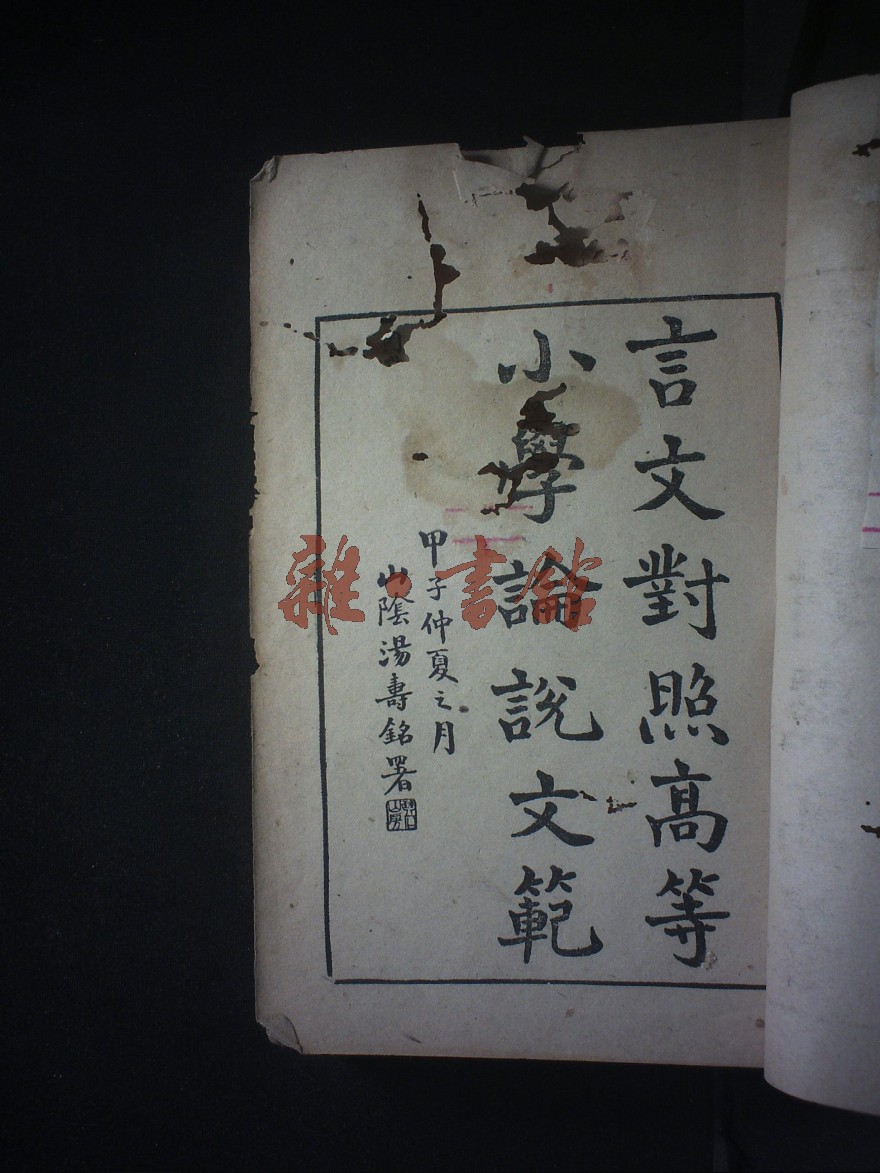 言文對照高等
小學論說文範
甲子仲夏之月
山陰湯壽銘署
雜·書館